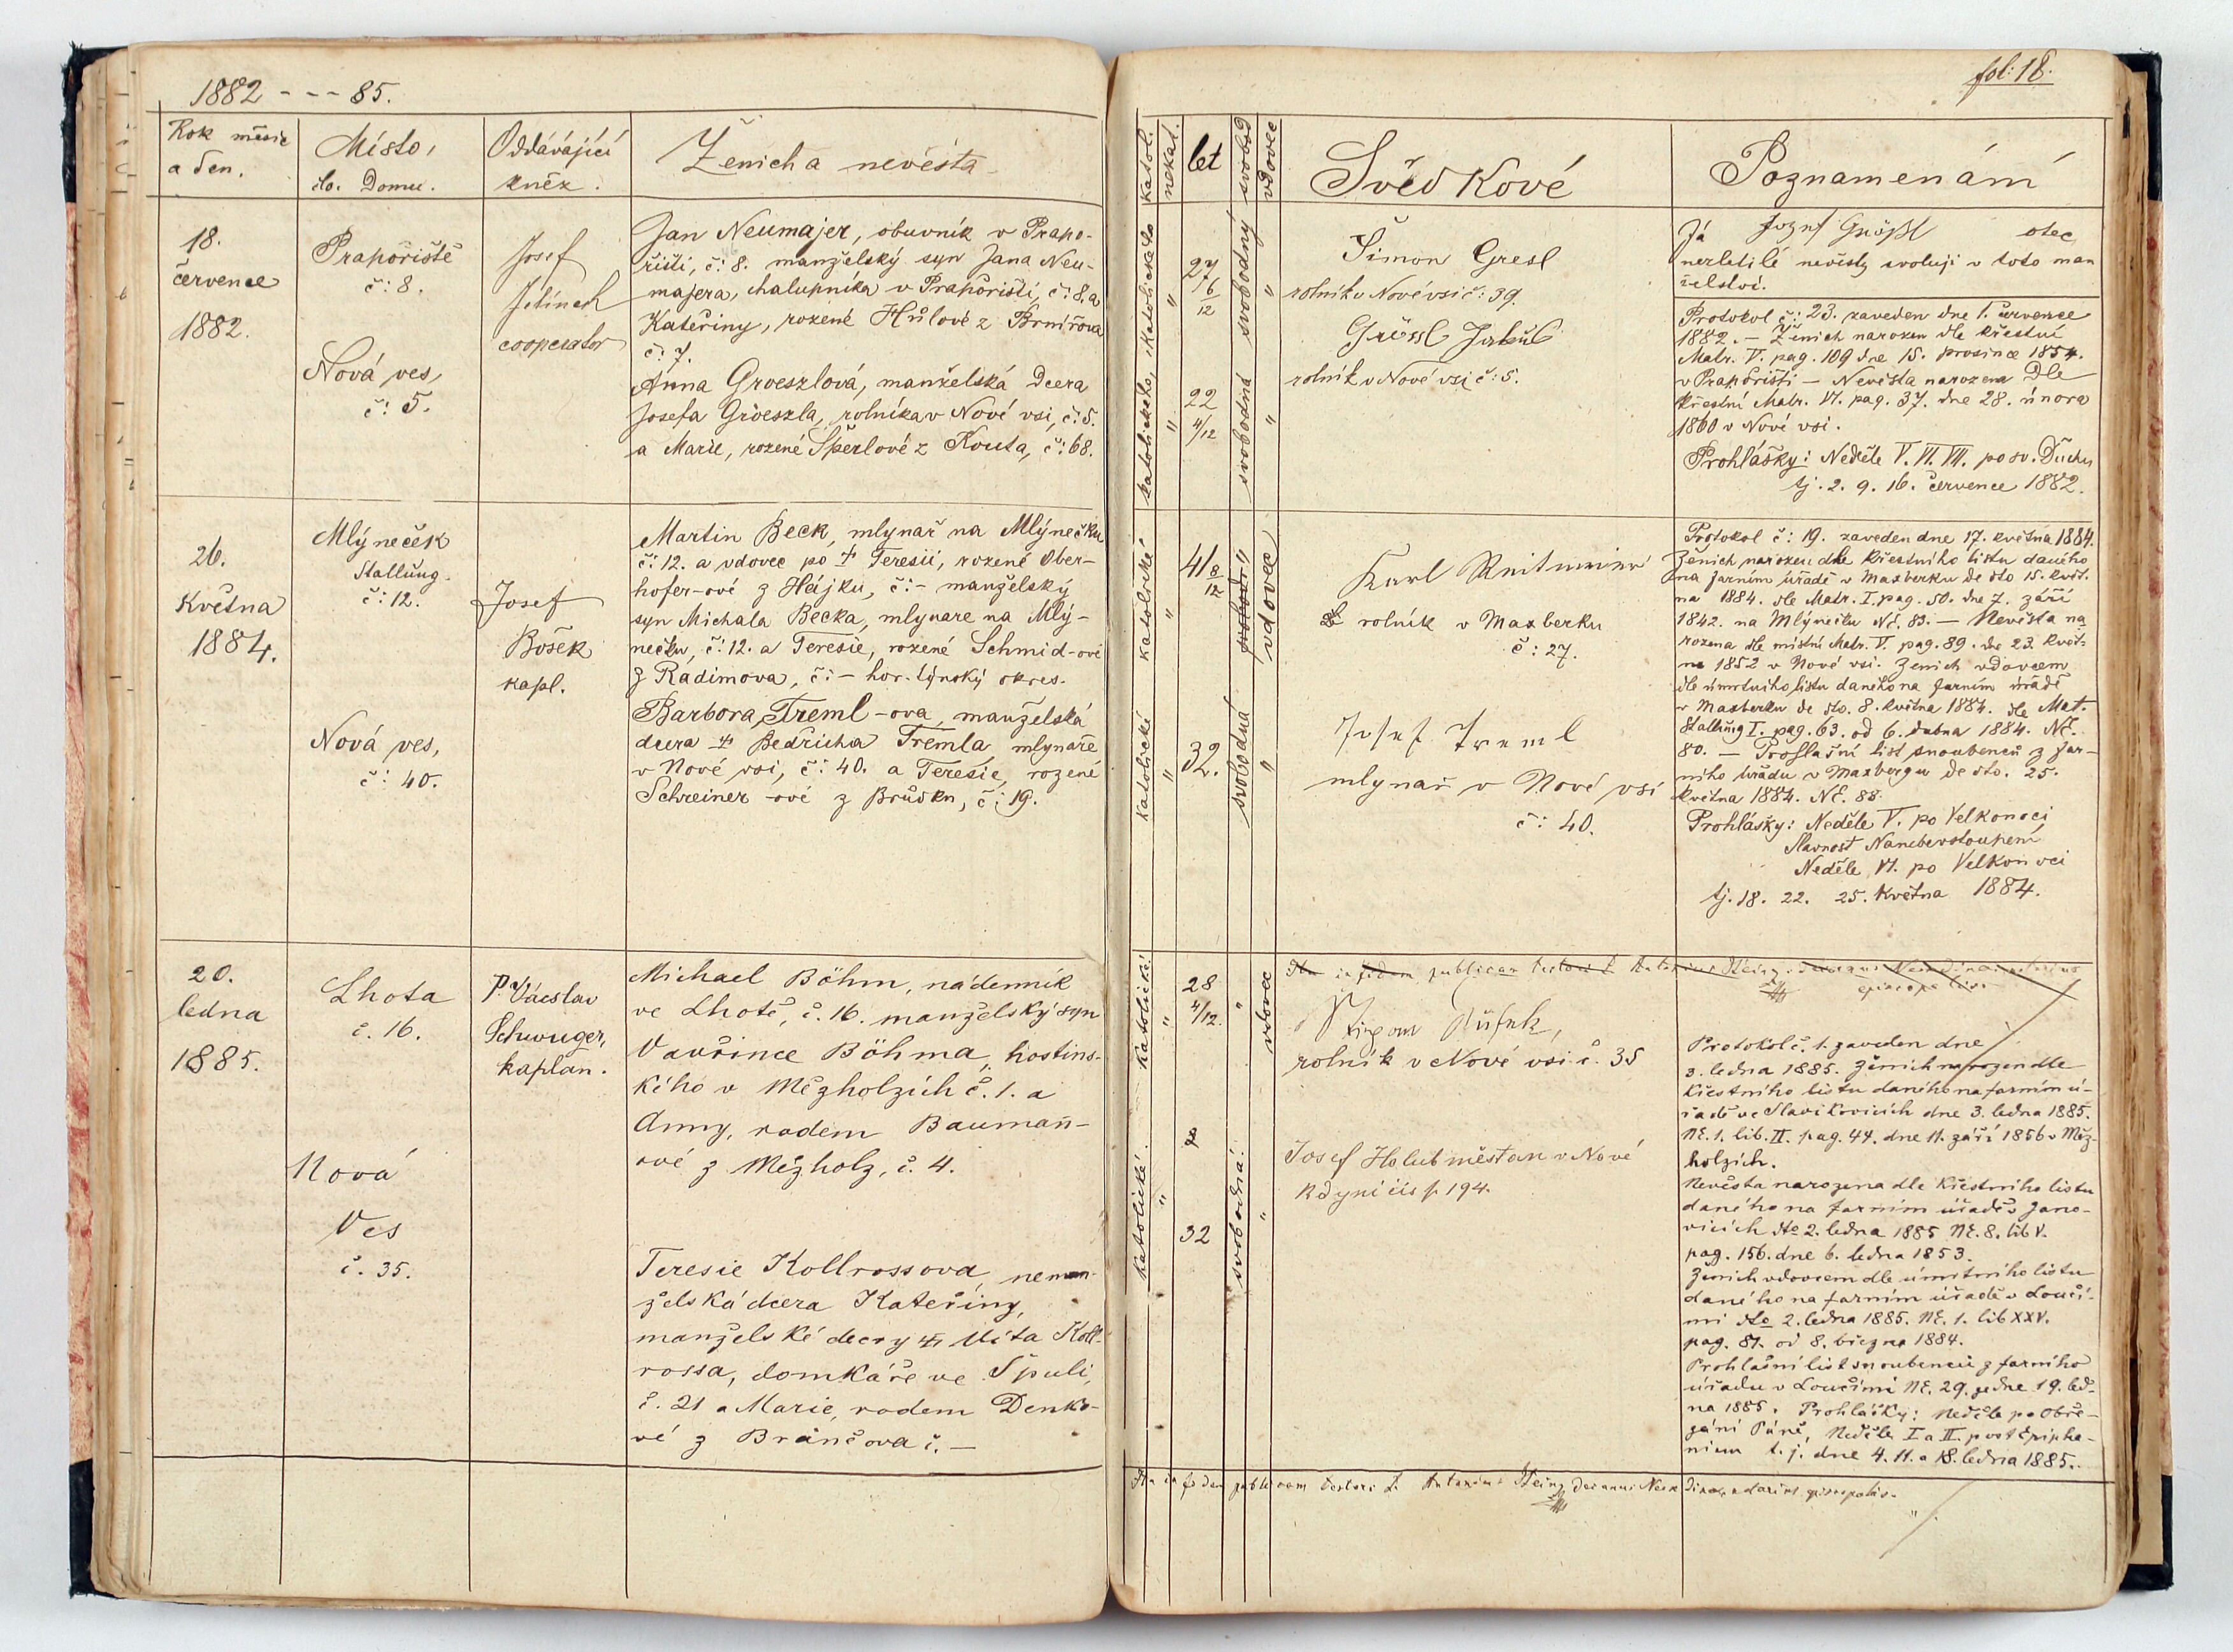 1882 - - - 85.
Rok měsíc
a den.
Místo,
čís. Domu.
Oddávající
kněz.
Ženich a nevěsta
18.
července
1882.
Prapořiště
č: 8.
Nová ves,
č: 5.
Josef
Jelínek
cooperator
Jan Neumajer, obuvník v Prapo-
řišti, č: 8. manželský syn Jana Neu-
majera, chalupníka v Prapořišti, č: 8. a
Kateřiny, rozené Hůlové z Brnířova
č: 7.
Anna Groeszlová, manželská dcera
Josefa Groeszla, rolníka v Nové vsi, č: 5.
a Marie, rozené Šperlové z Kouta, č: 68.
26.
Května
1884.
Mlýneček
Stallung.
č: 12.
Nová ves,
č: 40.
Josef
Bošek
kapl.
Martin Beck, mlynař na Mlýnečku
č: 12. a vdovec po † Teresii, rozené Ober-
hofer-ové z Hájku, č: - manželský
syn Michala Becka, mlynare na Mlý-
nečku, č: 12. a Teresie, rozené Schmid-ové
z Radimova, č: - hor. týnský okres.
Barbora Treml-ova, manželská
dcera † Bedřicha Tremla, mlynaře
v Nové vsi, č: 40. a Teresie, rozené
Schreiner-ové z Brůdku, č: 19.
20.
ledna
1885.
Lhota
č. 16.
Nová
Ves
č. 35.
P. Václav
Schwuger,
kaplan.
Michael Böhm, nádenník
ve Lhotě, č. 16. manželský syn
Vavřince Böhma, hostins-
kého v Mezholzích č. 1. a
Anny, rodem Bauman̄-
ové z Mezholz, č. 4.
Teresie Kollrossova, neman-
želská dcera Kateřiny,
manželské dcery † Víta Koll-
rossa, domkáře ve Spuli,
č. 21 a Marie, rodem Denko-
vé z Brančova č. -
fol: 18.
katol.
nekat.
let
svobod
vdovec
Svědkové
Poznamenání
katolického
27
6/12
svobodný
katolického,
22
4/12
svobodná
Šimon Gresl
rolník v Nové vsi č: 39.
Grössl Jakub
rolník v Nové vsi č: 5.
Já Josef Größl otec
nezletilé nevěsty svoluji v toto man
želství.
Protokol č: 23. zaveden dne 1. července
1882. - Ženich narozen dle křestní
Matr. V. pag. 109 dne 15. prosince 1854.
v Prapořišti - Nevěsta narozena Dle
křestní Matr. VI. pag. 37. dne 28. února
1860 v Nové vsi.
Prohlášky: Neděle V. VI. VII. po sv. Duchu
tj. 2. 9. 16. července 1882.
katolické
41 8/12
vdovec
katolické
32.
svobodná
Karl
rolník v Maxberku
č: 27.
Josef Treml
mlynař v Nové vsi
č: 40.
Protokol č: 19. zaveden dne 17. května 1884.
Ženich narozen dle křestního listu daného
na farním úřadě v Maxberku de dto 15. květ.
na 1884. dle Matr. I. pag. 50. dne 7. září
1842. na Mlýnečku Nč. 83. - Nevěsta na
rozena dle místní Matr. V. pag. 89. dne 23. květ-
na 1852 v Nové vsi. Ženich vdovcem
dle úmrtního listu daného na farním úřadě
v Maxberku de dto. 8. května 1884. dle Mat.
Stallung I. pag. 63. od 6. dubna 1884. NE.
80. - Prohlašní list snoubenců z far-
ního úřadu v Maxbergu de dto. 25.
května 1884. NE. 88.
Prohlášky: Neděle V. po Velkonoci
Slavnost Nanebevstoupení
Neděle VI. po Velkonoci
tj. 18. 22. 25. Května 1884.
Katolické
28
4/12.
vdovec
katolické
32
svobodná
rolník v Nové vsi č. 35
Josef Holub měštan v Nové
Kdyni čís p. 194.
Protokol č. 1. zaveden dne
3. ledna 1885. Ženich narozen dle
křestního listu daného na farním ú-
řadě ve Slavikovicích dne 3. ledna 1885.
NE. 1. lib. II. pag. 44. dne 11. září 1856 v Mez-
holzích.
Nevěsta narozena dle křestního listu
daného na farním úřadě v Jano-
vicích dto 2. ledna 1885 NE. 8. lib V.
pag. 156. dne 6. ledna 1853.
Ženich vdovcem dle úmrtního listu
daného na farním úřadě v Loučí-
mi dto 2. ledna 1885. NE. 1. lib XXV.
pag. 81. od 8. března 1884.
Prohlašní list snoubenců z farního
úřadu v Loučími NE. 29. ze dne 19. led-
na 1885. Prohlášky: Neděle po Obře-
zání Páně, Neděle I. a II. post Epipha-
niam t. j. dne 4. 11. a 18. ledna 1885.
Ita in fidem publicam testor: Antonius Heinz Decanus Neo